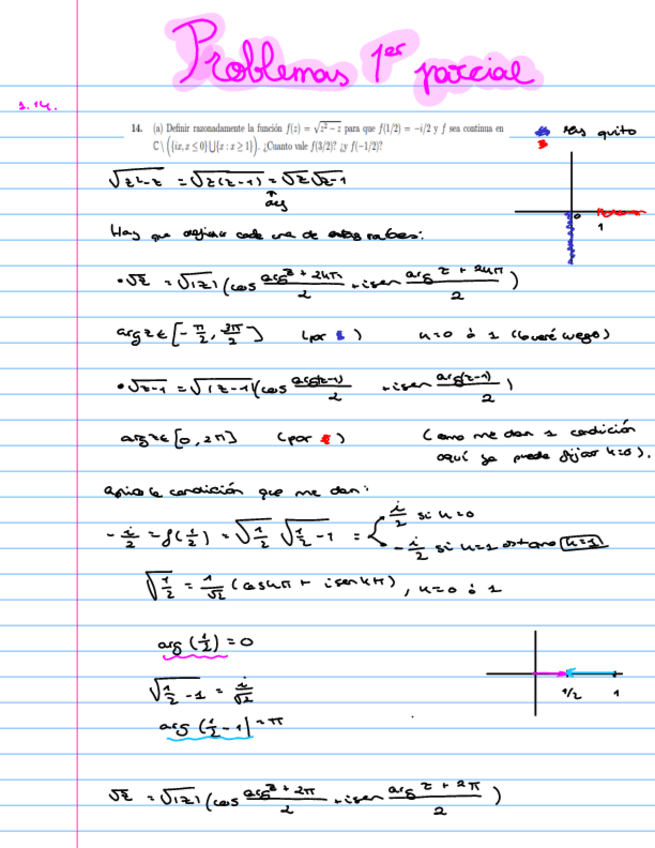 Problemas 1er parcial
1.14.
14. (a) Definir razonadamente la función f(z) = √z² − z para que f(1/2) = −i/2 y f sea continua en
ℂ \ ({ix, x ≤ 0} ⋃ {x : x ≥ 1}). ¿Cuanto vale f(3/2)? ¿y f(−1/2)?
quito
√z²-z = √z(z-1) = √z √z-1
0
1
Hay que definir cada una de estas raíces:
• √z = √|z| (cos (arg z + 2kπ)/2 + i sen (arg z + 2kπ)/2)
arg z ∈ [-π/2, 3π/2] (por ) k=0 ó 1 (lo veré luego)
• √z-1 = √|z-1| (cos arg(z-1)/2 + i sen arg(z-1)/2)
arg z ∈ [0, 2π] (por ) (como me dan 1 condición
aquí ya puedo fijar k=0).
la condición que me dan:
-i/2 = f(1/2) = √1/2 √1/2-1 = i/2 si k=0
-i/2 si k=1 k=1
√1/2 = 1/√2 (cos kπ + i sen kπ), k=0 ó 1
arg (1/2) = 0
√1/2-1 = i/√2
1/2 1
arg (1/2-1) = π
√z = √|z| (cos (arg z + 2π)/2 + i sen (arg z + 2π)/2)